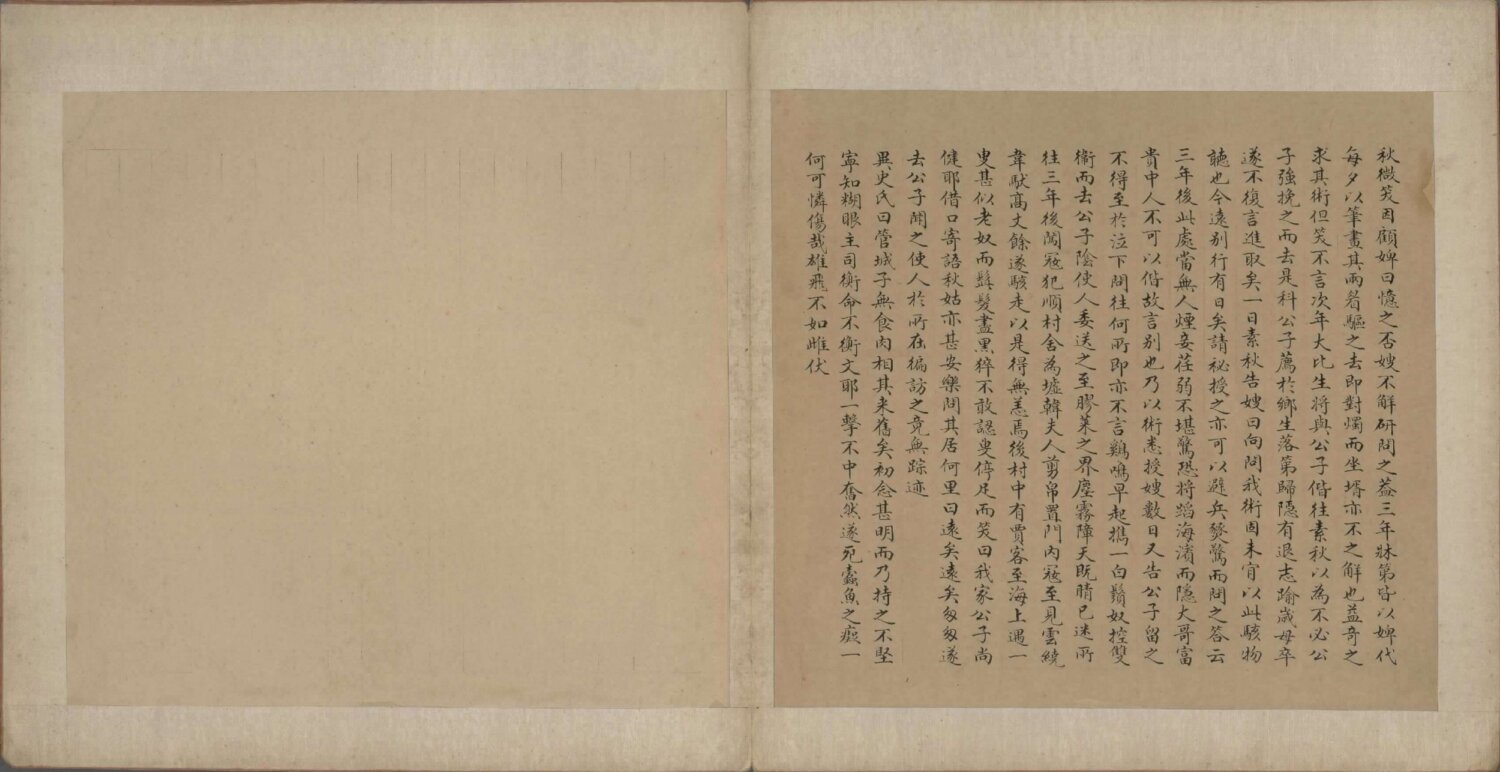 秋微笑因顧婢曰憶之否嫂不解研問之蓋三年牀笫皆以婢代
每夕以筆畫其兩眉驅之去即對燭而坐壻亦不之解也益奇之
求其術但笑不言次年大比生將與公子偕往素秋以為不必公
子強挽之而去是科公子薦於鄉生落第歸隱有退志踰歲母卒
遂不復言進取矣一日素秋告嫂曰向問我術固未肯以此駭物
聽也今遠別行有日矣請祕授之亦可以避兵燹驚而問之答云
三年後此處當無人煙妾荏弱不堪驚恐將蹈海濱而隱大哥富
貴中人不可以偕故言別也乃以術悉授嫂數日又告公子留之
不得至於泣下問往何所即亦不言鷄鳴早起攜一白鬚奴控雙
衛而去公子陰使人委送之至膠萊之界塵霧障天既晴已迷所
往三年後闖寇犯順村舍為墟韓夫人剪帛置門內寇至見雲繞
韋馱高丈餘遂駭走以是得無恙焉後村中有賈客至海上遇一
叟甚似老奴而髭髮盡黑猝不敢認叟停足而笑曰我家公子尚
健耶借口寄語秋姑亦甚安樂問其居何里曰遠矣遠矣匆匆遂
去公子聞之使人於所在徧訪之竟無踪迹
異史氏曰管城子無食肉相其来舊矣初念甚明而乃持之不堅
寧知糊眼主司衡命不衡文耶一擊不中奮然遂死蠹魚之癡一
何可憐傷哉雄飛不如雌伏